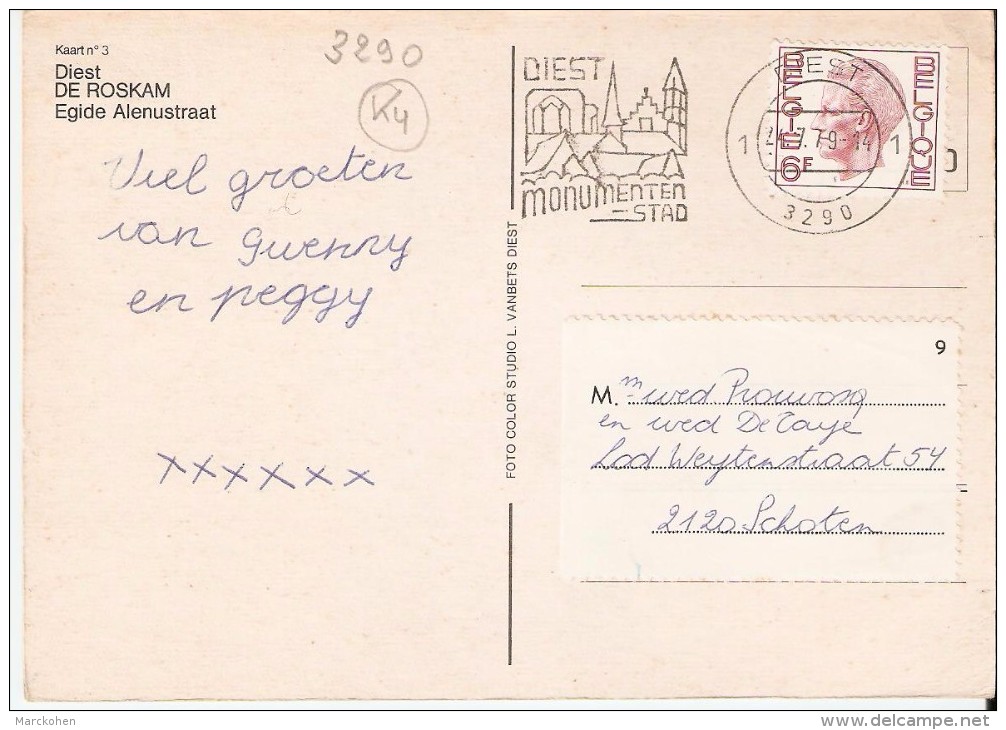 Kaart n° 3
Diest
DE ROSKAM
Egide Alenustraat
3290
K4
Viel groeten
van Gwenny
en peggy
xxxxxx
FOTO COLOR STUDIO L. VANBETS DIEST
DIEST
MONUMENTEN
STAD
DIEST
1 24.7.79-14 1
3290
BELGIE
BELGIQUE
6F
9
M.m wed Prouvosq
en wed De Taye
Lod Weytenstraat 54
2120 Schoten
Marckohen
www.delcampe.net